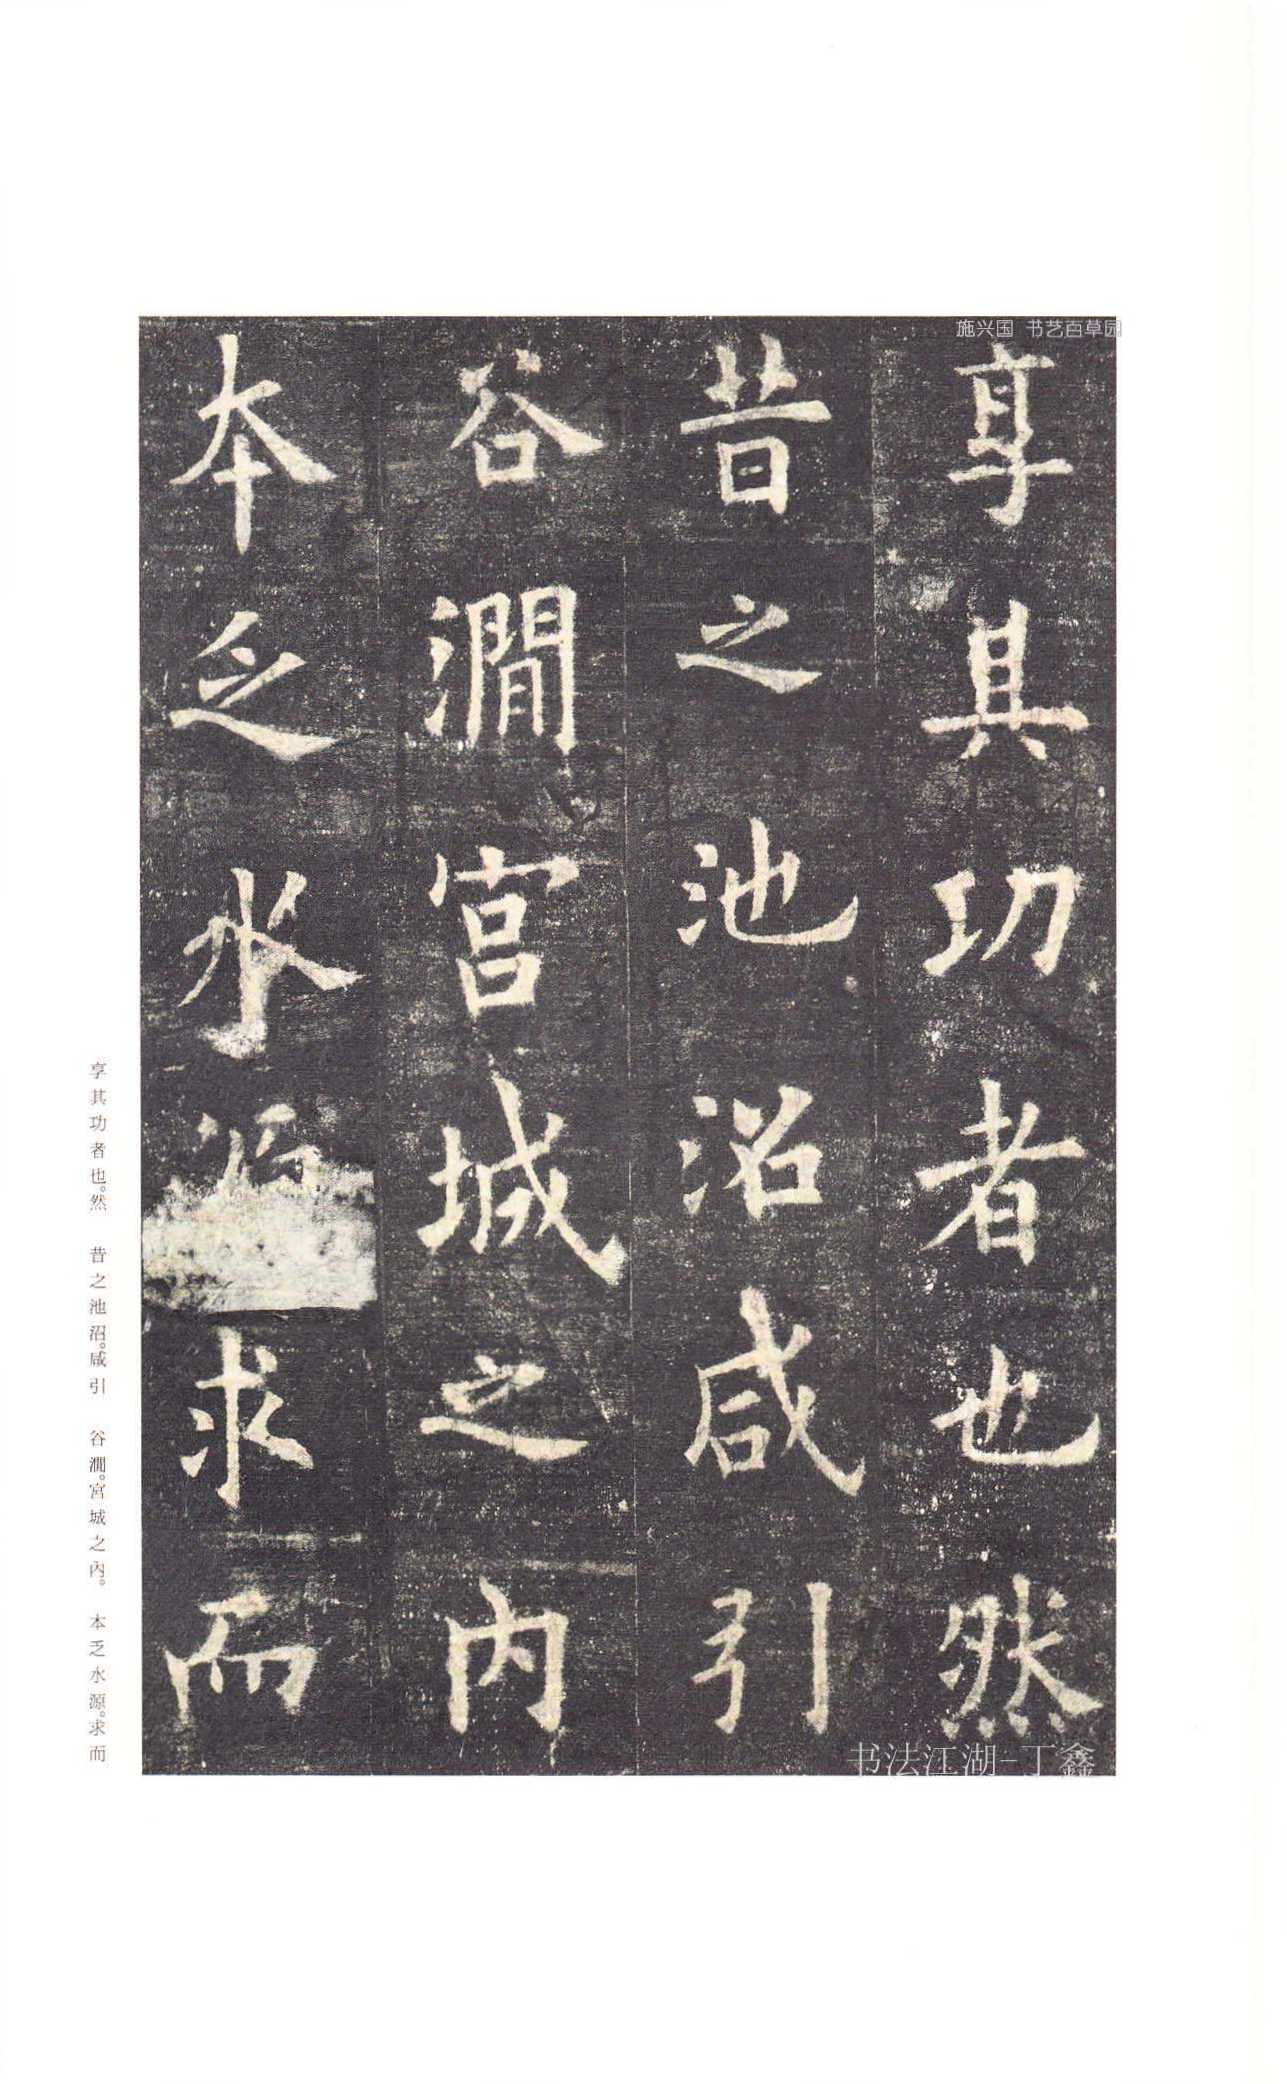 施兴国 书艺百草园
享其功者也然
昔之池沼咸引
谷澗宮城之內
本乏水源求而
书法江湖-丁鑫
享其功者也。然 昔之池沼。咸引 谷澗。宮城之內。 本乏水源。求而